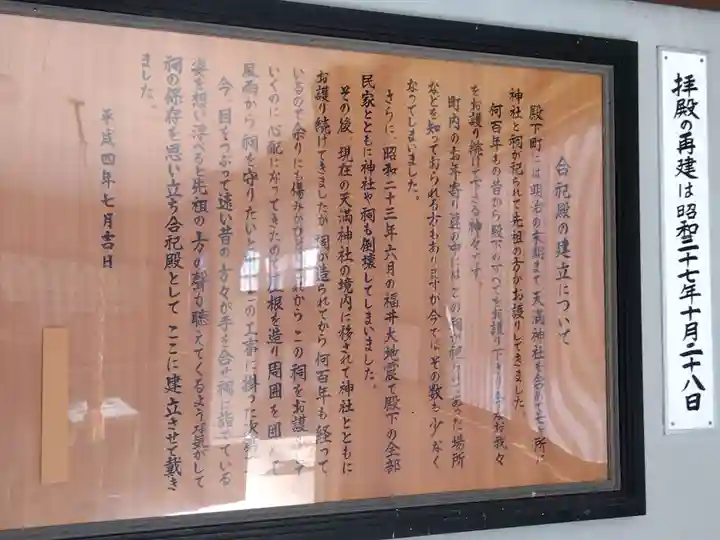 拝殿の再建は昭和二十七年十月二十八日
合祀殿の建立について
殿下町には明治の末期まで天満神社を含め
神社と祠が祀られて先祖の方がお護りしてきました
何百年もの昔から殿下のすべてをお護り下さり
をお護り続けて下さる神々です。
町内のお年寄り達の中にはこの祠が祀られてあった場所
などを知っておられる方もありますが今ではその数も少なく
なってしまいました。
さらに、昭和二十三年六月の福井大地震で殿下の全部
民家とともに神社や祠も倒壊してしまいました。
その後、現在の天満神社の境内に移されて神社とともに
お護り続けてきましたが祠が造られてから何百年も経って
いるので余りにも傷みがひどくこれからこの祠をお護
いくのに心配になってきたので屋根を造り周囲を囲
風雨から祠を守りたいと この工事に掛った
今、目をつぶって遠い昔の方々が手を合せ祠に詣でている
姿を想い浮べると先祖の方の声が聴えてくるような気がして
祠の保存を思い立ち合祀殿としてここに建立させて戴き
ました。
平成四年七月吉日